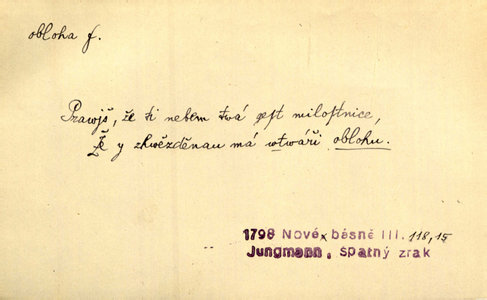 obloha f.
Prawjš, že ti nebem twá gest milostnice,
Že y zhwězděnau má wtwáři oblohu.
1798 Nové básně III. 118,15
Jungmann, Špatný zrak